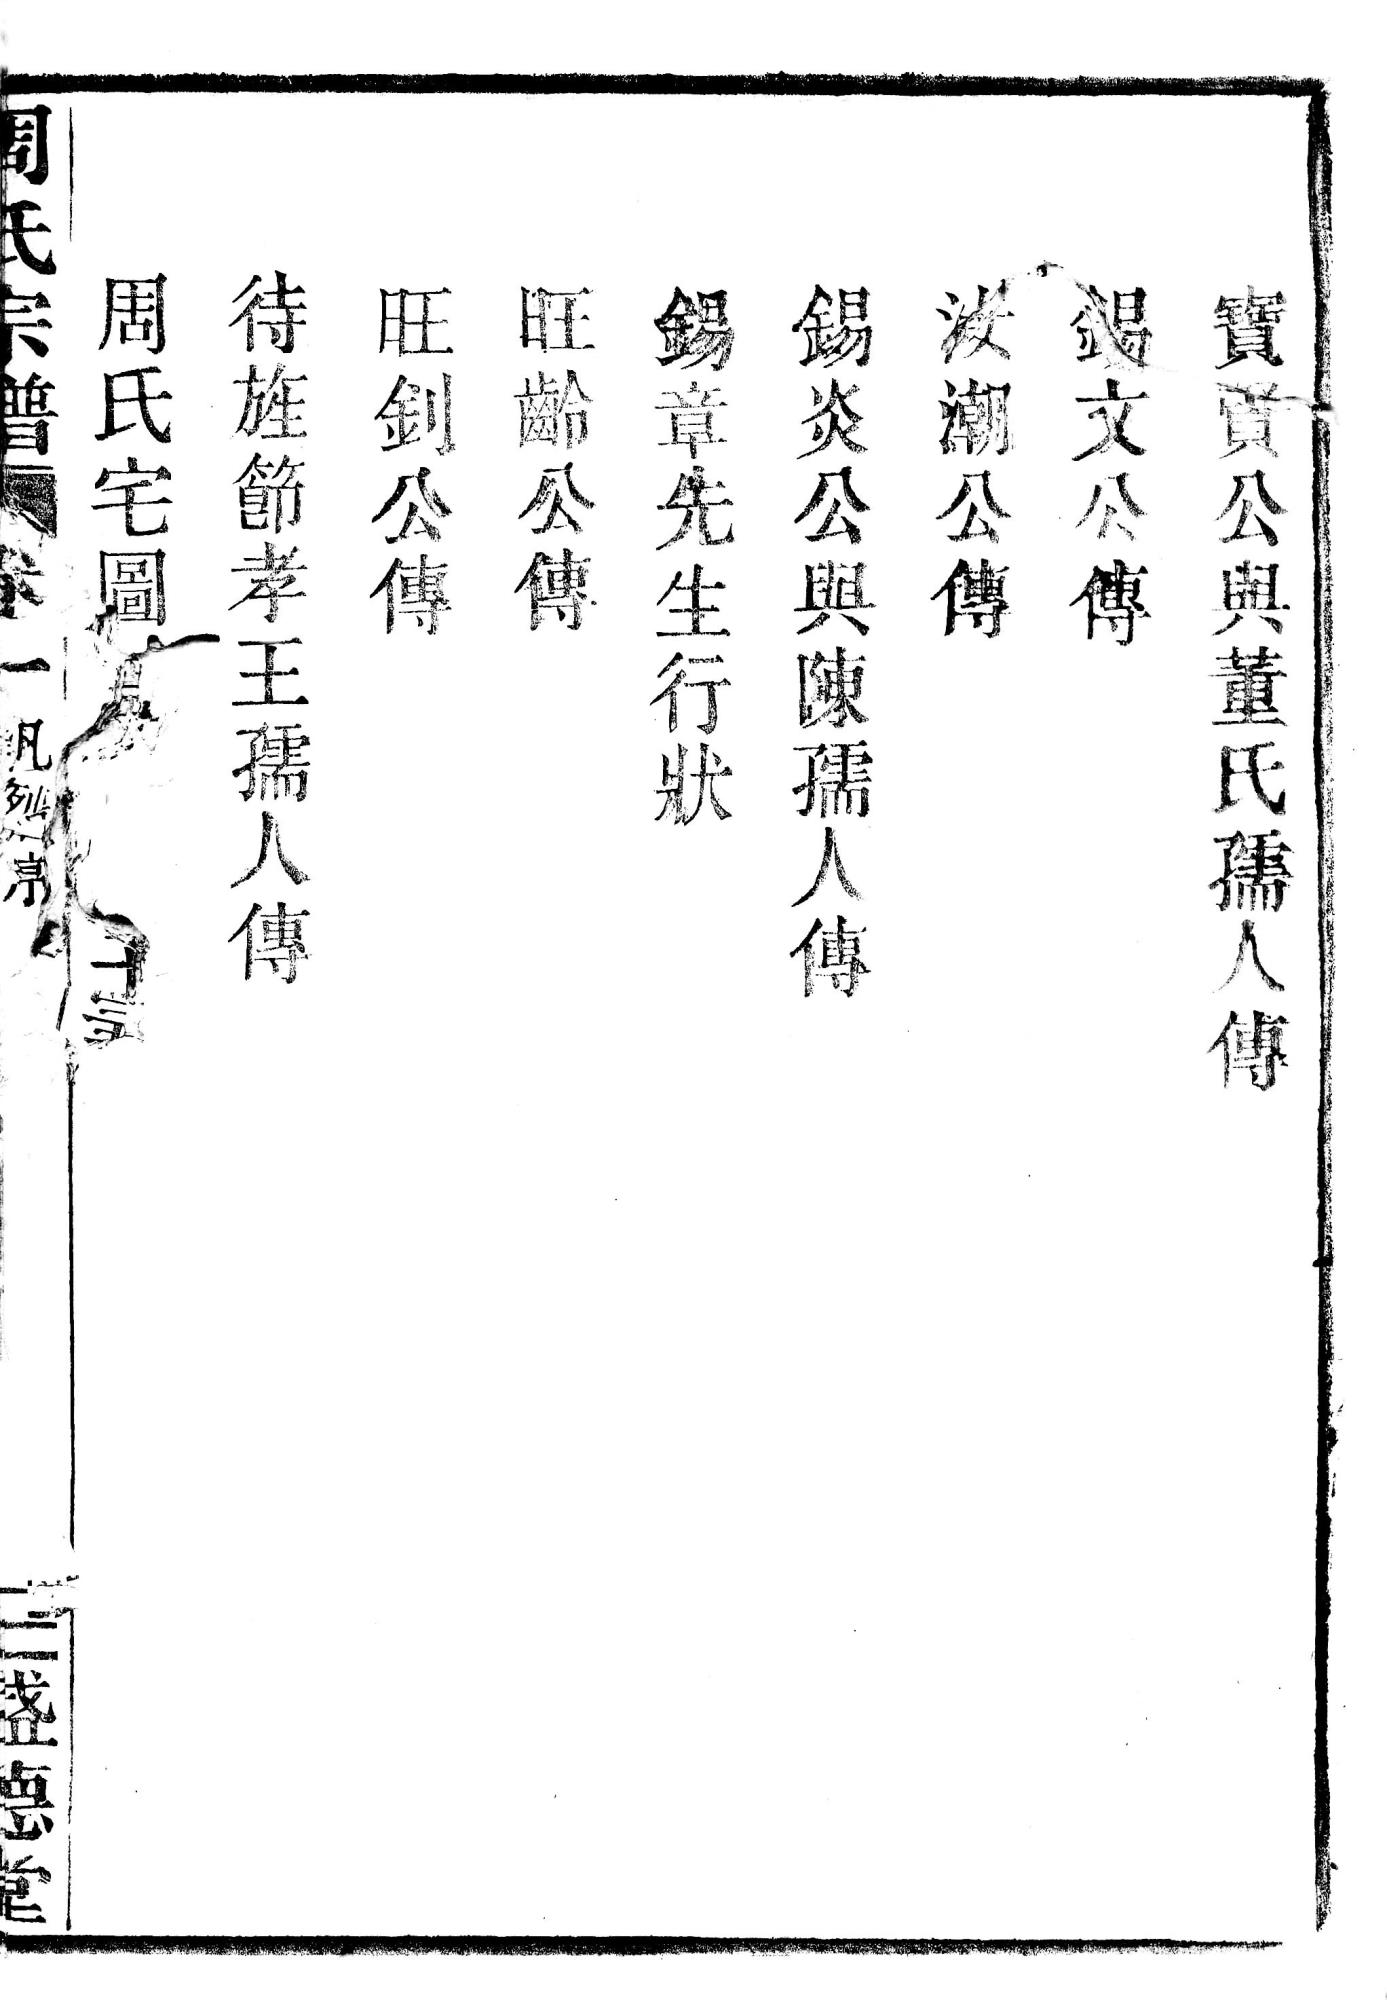 寶貢公與董氏孺人傳
錫文公傳
汝潮公傳
錫炎公與陳孺人傳
錫章先生行狀
旺齡公傳
旺釗公傳
待旌節孝王孺人傳
周氏宅圖
周氏宗譜 卷一 凡列 盛德堂